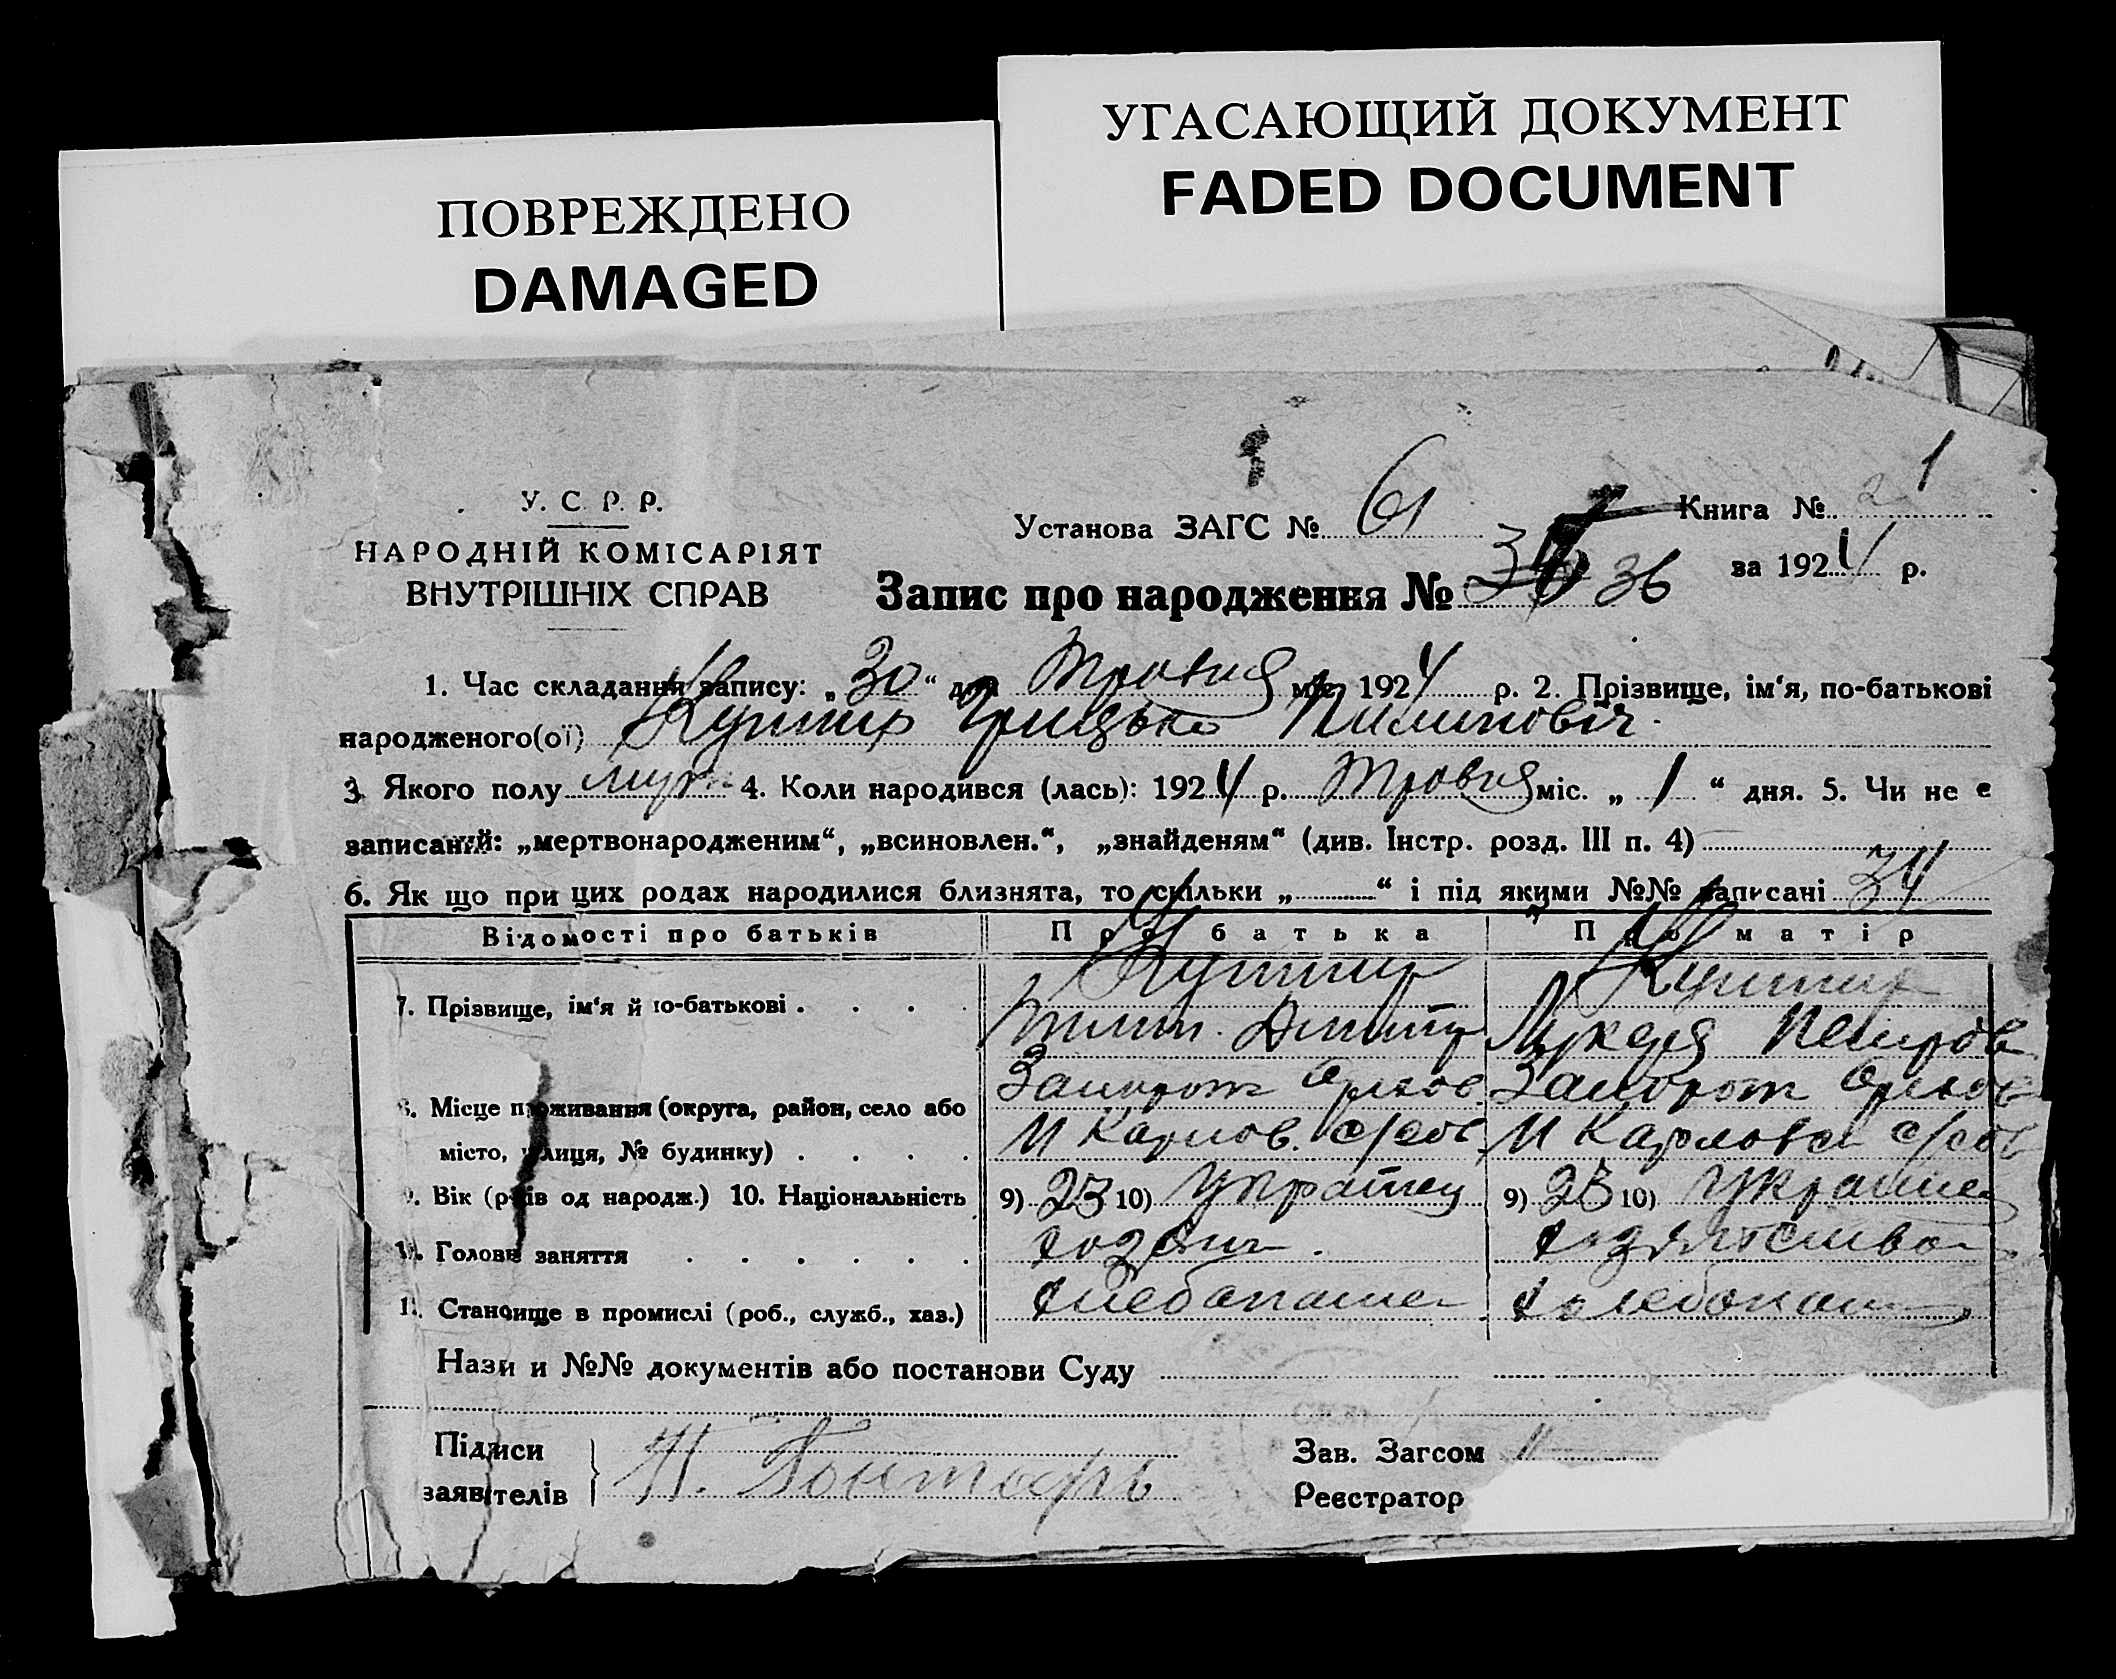 УГАСАЮЩИЙ ДОКУМЕНТ
FADED DOCUMENT
ПОВРЕЖДЕНО
DAMAGED
У. С. Р. Р.
НАРОДНІЙ КОМІСАРІЯТ
ВНУТРІШНІХ СПРАВ
Установа ЗАГС № 61
Книга № 1
за 1924 р.
Запис про народження № 36
1. Час складання запису: „30“ дня Травня міс. 1924 р. 2. Прізвище, ім‘я, по-батькові
народженого(ої) Кушнир Грицько Пилипович.
3. Якого полу муж 4. Коли народився (лась): 1924 р. Травня міс. „1“ дня. 5. Чи не є
записаний: „мертвонародженим“, „всиновлен.“, „знайденям“ (див. Інстр. розд. III п. 4)
6. Як що при цих родах народилися близнята, то скільки „ “ і під якими №№ записані 34
Відомості про батьків Про батька Про матір
7. Прізвище, ім‘я й по-батькові . . . . Кушнир Кушнир
Пилип. Дмитр Лукеря Петров
8. Місце проживання (округа, район, село або Запорож Оріхов. Запорож Оріхов
місто, улиця, № будинку) . . . . М Карлов. с/сов М Карловка с/сов
9. Вік (років од народж.) 10. Національність 9) 23 10) Українец 9) 23 10) Украине
11. Голове заняття . . . . . .
12. Становище в промислі (роб., служб., хаз.) хлебопаше
Нази и №№ документів або постанови Суду
Підписи
заявителів } Гонтарь
Зав. Загсом
Реєстратор